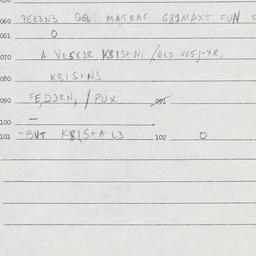 060 ?ER3N3 QGL MATRAC G81MAXT FUN
061 O
070 A VE5X3R K81S+N, /OKD VE5J-XR,
080 K81S+NS
090 FE,D3RN, / PUX 091
100 —
101 -BUT K81S+A L3 102 O